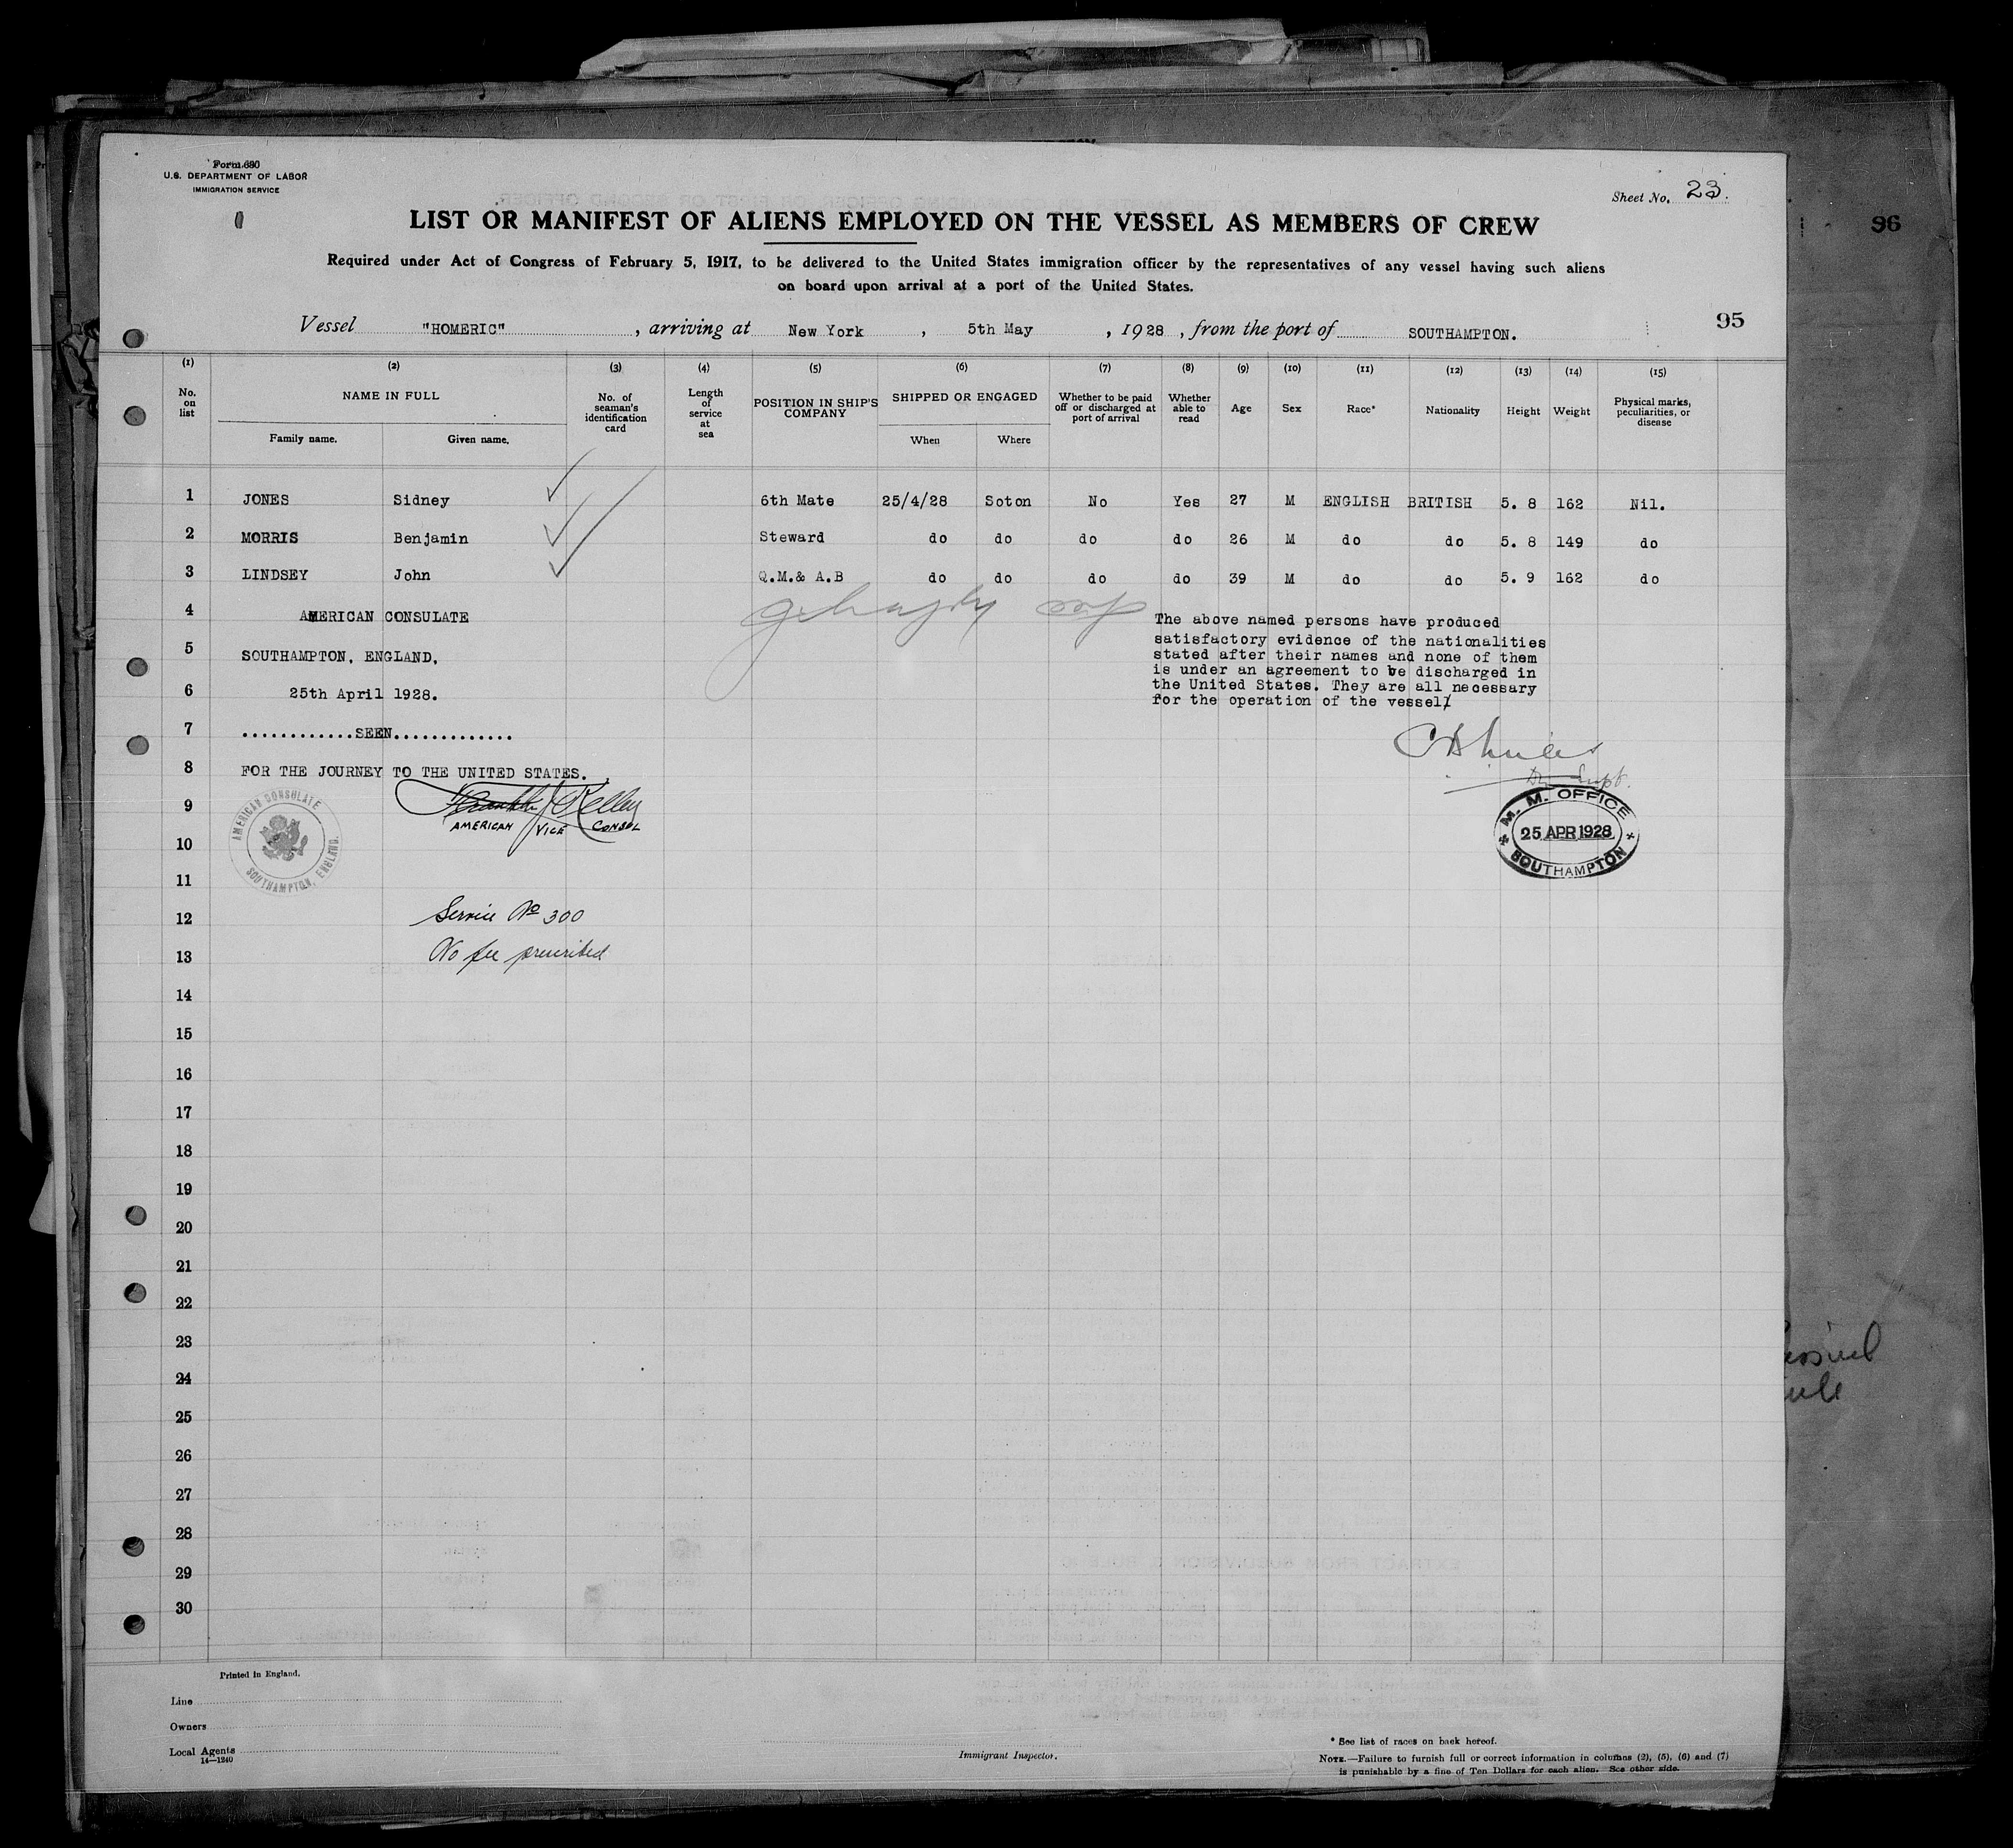 Form 680
U.S. DEPARTMENT OF LABOR
IMMIGRATION SERVICE
Sheet No. 23.
LIST OR MANIFEST OF ALIENS EMPLOYED ON THE VESSEL AS MEMBERS OF CREW
Required under Act of Congress of February 5, 1917, to be delivered to the United States immigration officer by the representatives of any vessel having such aliens
on board upon arrival at a port of the United States.
96
95
Vessel "HOMERIC", arriving at New York, 5th May, 1928, from the port of SOUTHAMPTON.
(1) (2) (3) (4) (5) (6) (7) (8) (9) (10) (11) (12) (13) (14) (15)
No. on list
NAME IN FULL
Family name. Given name.
No. of seaman's identification card
Length of service at sea
POSITION IN SHIP'S COMPANY
SHIPPED OR ENGAGED
When Where
Whether to be paid off or discharged at port of arrival
Whether able to read
Age
Sex
Race*
Nationality
Height
Weight
Physical marks, peculiarities, or disease
1 JONES Sidney 6th Mate 25/4/28 Soton No Yes 27 M ENGLISH BRITISH 5. 8 162 Nil.
2 MORRIS Benjamin Steward do do do do 26 M do do 5. 8 149 do
3 LINDSEY John Q.M.& A.B do do do do 39 M do do 5. 9 162 do
4 AMERICAN CONSULATE
5 SOUTHAMPTON, ENGLAND,
6 25th April 1928.
7 ............SEEN.............
8 FOR THE JOURNEY TO THE UNITED STATES.
The above named persons have produced
satisfactory evidence of the nationalities
stated after their names and none of them
is under an agreement to be discharged in
the United States. They are all necessary
for the operation of the vessel
9
Kelley
AMERICAN VICE CONSUL
AMERICAN CONSULATE
SOUTHAMPTON, ENGLAND.
M. M. OFFICE
25 APR 1928
SOUTHAMPTON
10
11
12 Service No 300
13 No fee prescribed
14
15
16
17
18
19
20
21
22
23
24
25
26
27
28
29
30
Printed in England.
Line
Owners
Local Agents
14—1240
Immigrant Inspector.
* See list of races on back hereof.
NOTE.—Failure to furnish full or correct information in columns (2), (5), (6) and (7)
is punishable by a fine of Ten Dollars for each alien. See other side.